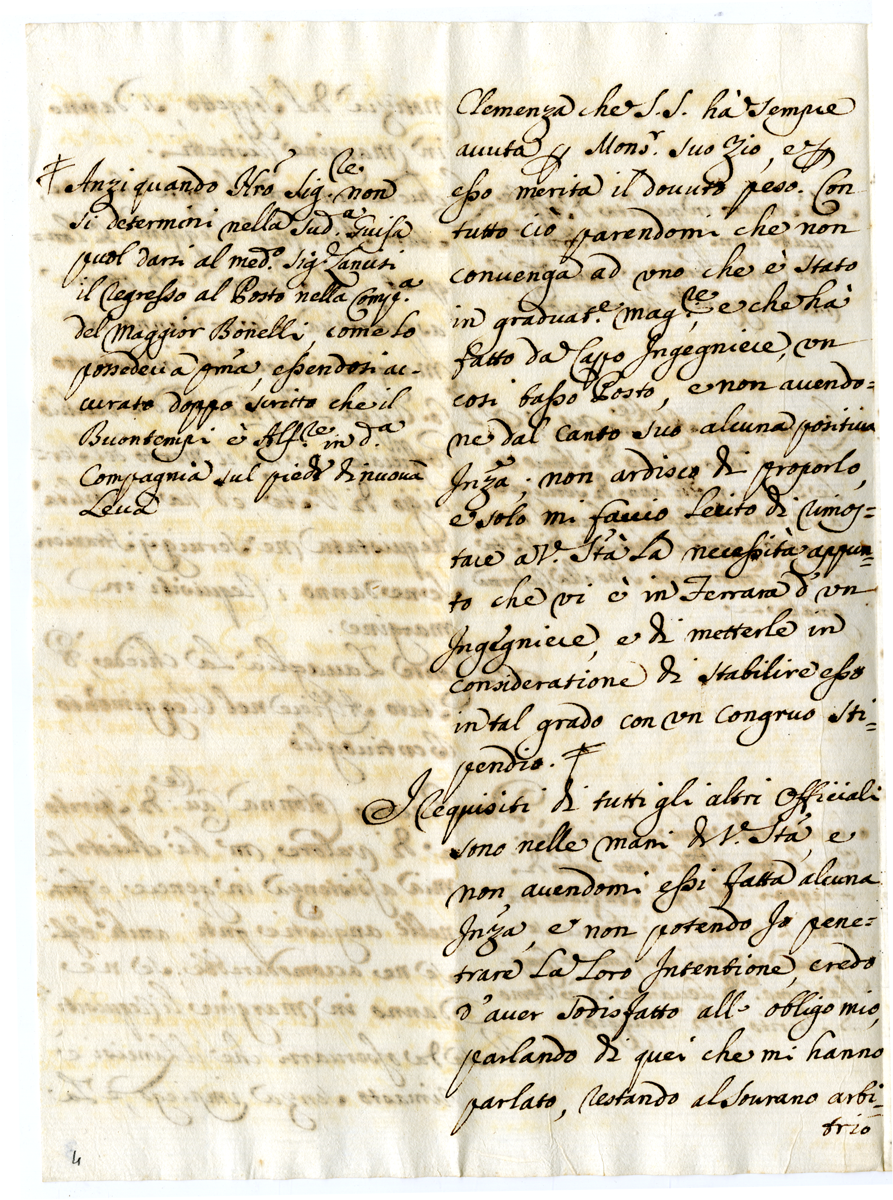 Clemenza che S.S. hà sempre
avuta p Mons.r suo zio, e p
esso merita il dovuto peso. Con
tutto ciò parendomi che non
convenga ad vno che è stato
in graduat.e mag.re, e che hà
fatto da Capo Ingegniere, vn
così basso Posto, e non avendo=
ne dal Canto suo alcuna positiva
Inza, non ardisco di proporlo,
e solo mi faccio lecito di rimos=
trare a V. Stà La necessità appun=
to che vi è in Ferrara d'vn
Ingegniere, e di metterle in
consideratione di stabilire esso
in tal grado con vn congruo sti=
pendio. ‡
I requisiti di tutti gli altri Officiali
sono nelle mani di V. Stà, e
non avendomi essi fatta alcuna
Inza, e non potendo Jo pene=
trare La Loro Intentione, credo
d'aver sodisfatto all' obligo mio,
parlando di quei che mi hanno
parlato, restando al sovrano arbi=
trio
‡ Anzi quando Nro Sig.re non
si determini nella sud.a Guisa
puol darsi al med.o Sig.r Zanuti
il regresso al Posto nella Comp.a
del Maggior Bonelli, come lo
possedeva pma, essendosi ac-
curato doppo scritto che il
Buontempi è Alf.re in d.a
Compagnia sul piede di nuova
Leva
4